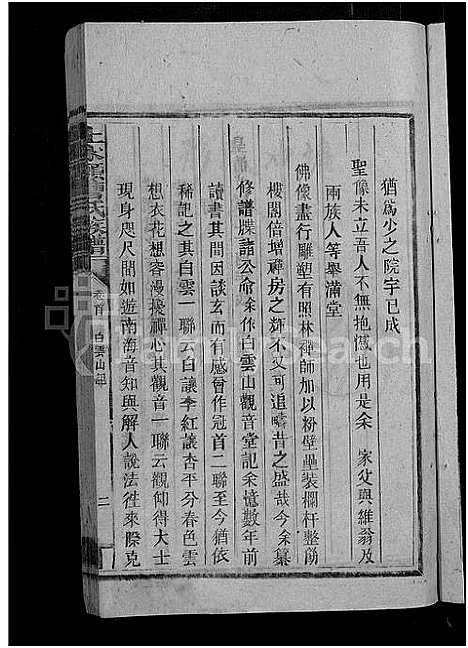 猶爲少之院宇已成
聖像未立吾人不無抱憾也用是余 家父與維翁及
兩族人等舉滿堂
佛像盡行雕塑有照林禪師加以粉壁壘裝欄杆整筋
樓閣倍增禪房之輝不又可追疇昔之盛哉今余纂
修譜牒諸公命余作白雲山觀音堂記余憶數年前
讀書其間因談玄而有感曾作冠首二聯至今猶依
稀記之其白雲一聯云白讓李紅讓杏平分春色雲
想衣花想容漫擾禪心其觀音一聯云觀仰得大士
現身咫尺間如遊南海音知與解人說法往來際克
氏族譜
卷首 白雲山記
二